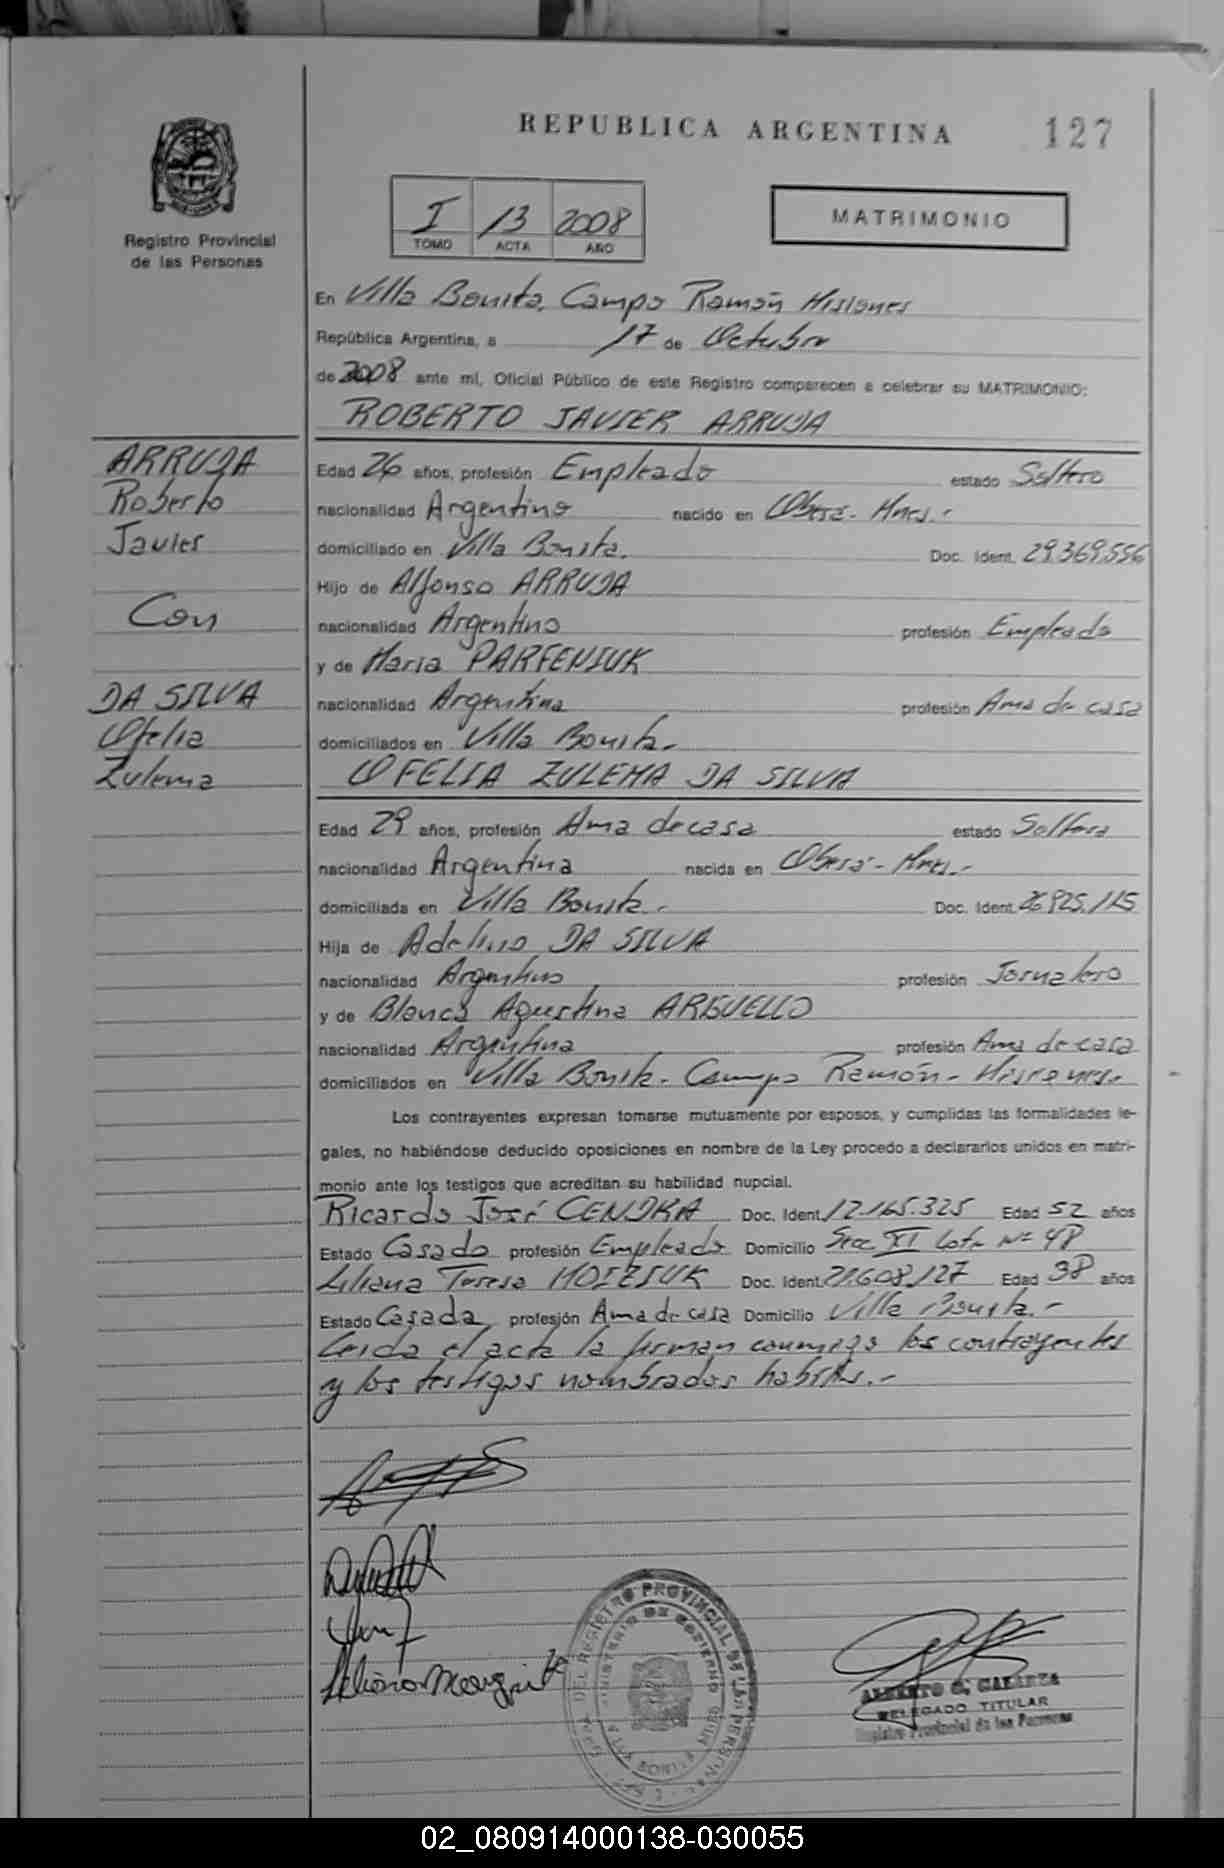 REPUBLICA ARGENTINA 127
Registro Provincial
de las Personas
I 13 2008
TOMO ACTA AÑO
MATRIMONIO
En Villa Bonita, Campo Ramón Misiones
República Argentina, a 17 de Octubre
de 2008 ante mí, Oficial Público de este Registro comparecen a celebrar su MATRIMONIO:
ROBERTO JAVIER ARRUJA
ARRUJA
Roberto
Javier
Con
DA SILVA
Ofelia
Zulema
Edad 26 años, profesión Empleado estado Soltero
nacionalidad Argentino nacido en Oberá - Mnes.-
domiciliado en Villa Bonita. Doc. Ident. 29.369.556
Hijo de Alfonso ARRUJA
nacionalidad Argentino profesión Empleado
y de Maria PARFENIUK
nacionalidad Argentina profesión Ama de casa
domiciliados en Villa Bonita.-
OFELIA ZULEMA DA SILVA
Edad 29 años, profesión Ama de casa estado Soltera
nacionalidad Argentina nacida en Oberá - Mnes.-
domiciliada en Villa Bonita.- Doc. Ident. 26.925.115
Hija de Adelino DA SILVA
nacionalidad Argentino profesión Jornalero
y de Blanca Agustina ARGUELLO
nacionalidad Argentina profesión Ama de casa
domiciliados en Villa Bonita - Campo Ramón - Misiones.-
Los contrayentes expresan tomarse mutuamente por esposos, y cumplidas las formalidades le-
gales, no habiéndose deducido oposiciones en nombre de la Ley procedo a declararlos unidos en matri-
monio ante los testigos que acreditan su habilidad nupcial.
Ricardo José CENDRA Doc. Ident. 12.165.325 Edad 52 años
Estado Casado profesión Empleado Domicilio Secc XI Lote Nº 48
Liliana Teresa MOIZIUK Doc. Ident. 21.608.127 Edad 38 años
Estado Casada profesión Ama de casa Domicilio Villa Bonita.-
Leida el acta la firman conmigo los contrayentes
y los testigos nombrados habiles.-
DEL REGISTRO PROVINCIAL DE LAS PERSONAS
MINISTERIO DE GOBIERNO
VILLA BONITA
ALBERTO G. GALARZA
DELEGADO TITULAR
Registro Provincial de las Personas
02_080914000138-030055